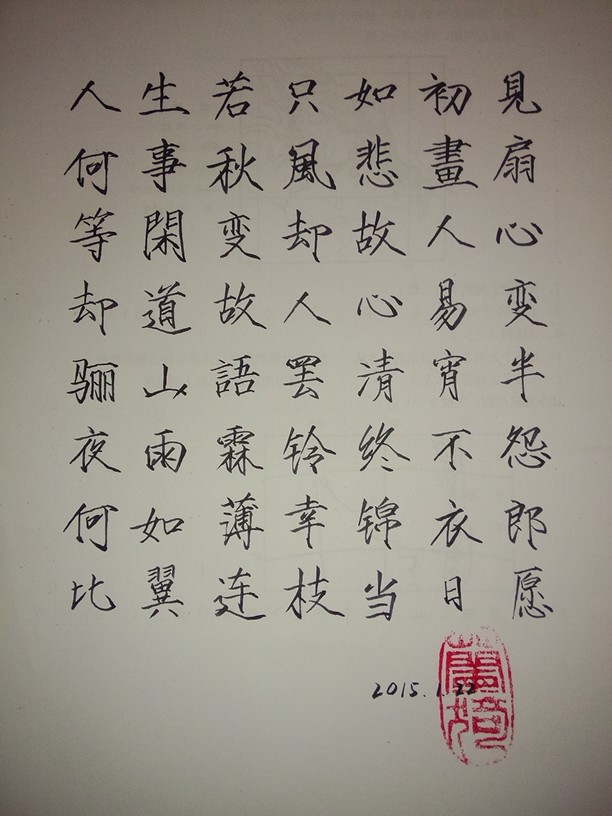 人生若只如初見
何事秋風悲畫扇
等閑变却故人心
却道故人心易变
骊山語罢清宵半
夜雨霖铃终不怨
何如薄幸锦衣郎
比翼连枝当日愿
2015.1.22